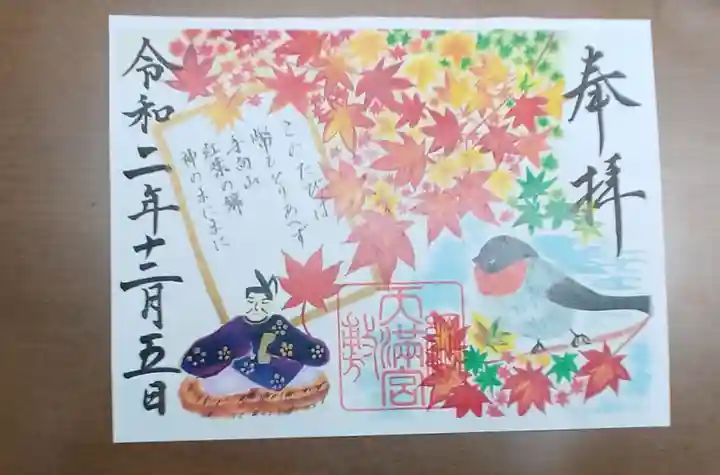 奉拝
このたびは
幣もとりあへず
手向山
紅葉の錦
神のまにまに
天満宮
令和二年十二月五日